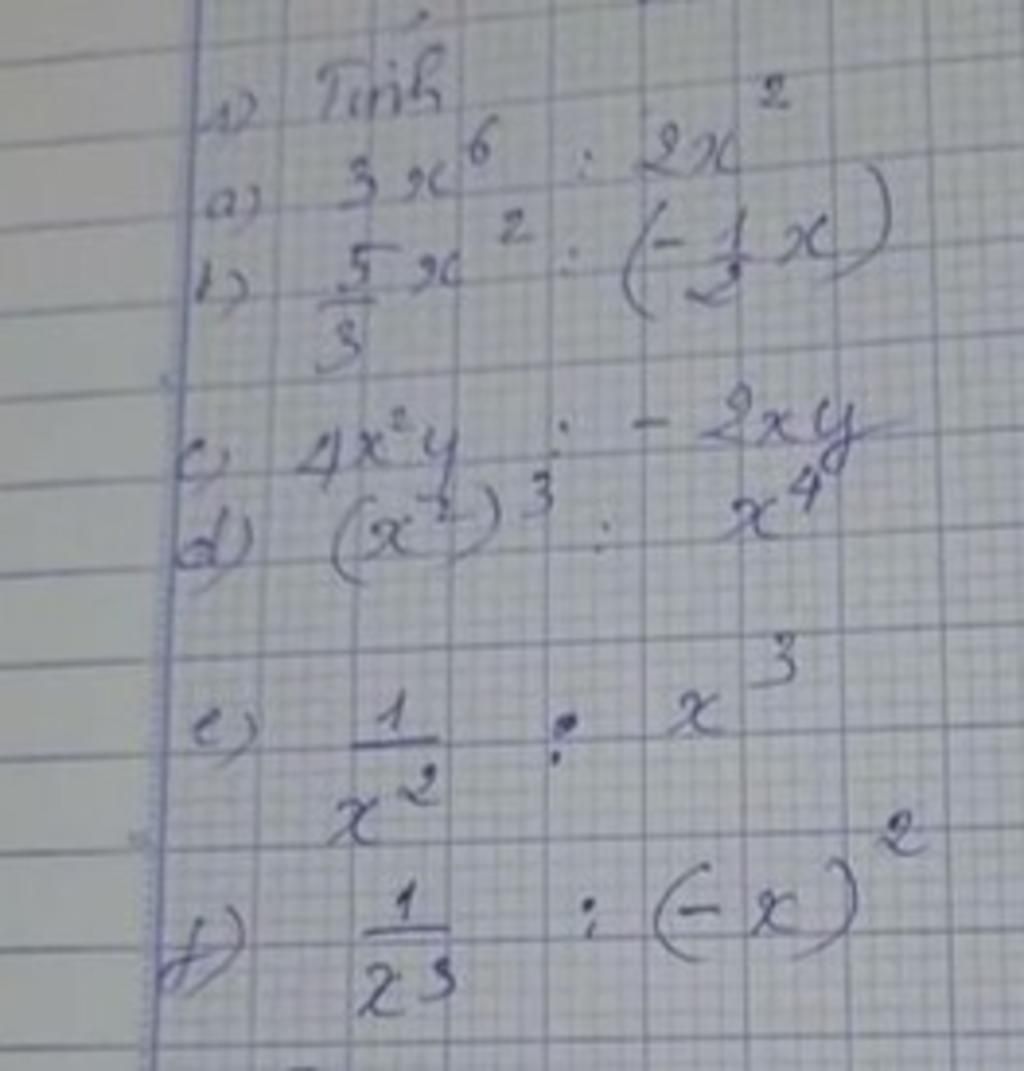 1) Tính
a) 3x⁶ : 2x²
b) 5/3 x² : (-1/2 x)
c) 4x²y : - 2xy
d) (x²)³ : x⁴
e) 1/x² : x³
f) 1/x³ : (-x)²